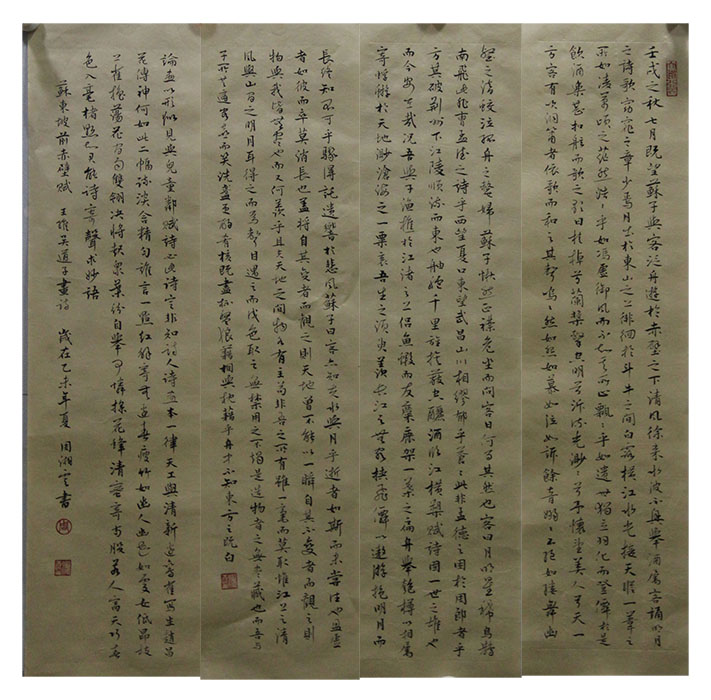 壬戌之秋七月既望蘇子與客泛舟遊於赤壁之下清風徐來水波不興舉酒屬客誦明月
之詩歌窈窕之章少焉月出於東山之上徘徊於斗牛之間白露橫江水光接天縱一葦之
所如凌萬頃之茫然浩浩乎如馮虛御風而不知其所止飄飄乎如遺世獨立羽化而登仙於是
飲酒樂甚扣舷而歌之歌曰桂棹兮蘭槳擊空明兮泝流光渺渺兮予懷望美人兮天一
方客有吹洞簫者依歌而和之其聲嗚嗚然如怨如慕如泣如訴餘音嫋嫋不絕如縷舞幽
壑之潛蛟泣孤舟之嫠婦蘇子愀然正襟危坐而問客曰何為其然也客曰月明星稀烏鵲
南飛此非曹孟德之詩乎西望夏口東望武昌山川相繆鬱乎蒼蒼此非孟德之困於周郎者乎
方其破荊州下江陵順流而東也舳艫千里旌旗蔽空釃酒臨江橫槊賦詩固一世之雄也
而今安在哉況吾與子漁樵於江渚之上侶魚蝦而友麋鹿駕一葉之扁舟舉匏樽以相屬
寄蜉蝣於天地渺滄海之一粟哀吾生之須臾羨長江之無窮挾飛僊以遨遊抱明月而
長終知不可乎驟得託遺響於悲風蘇子曰客亦知夫水與月乎逝者如斯而未嘗往也盈虛
者如彼而卒莫消長也蓋將自其變者而觀之則天地曾不能以一瞬自其不變者而觀之則
物與我皆無盡也而又何羨乎且夫天地之間物各有主苟非吾之所有雖一毫而莫取惟江上之清
風與山間之明月耳得之而為聲目遇之而成色取之無禁用之不竭是造物者之無盡藏也而吾與
子所共適客喜而笑洗盞更酌肴核既盡杯盤狼藉相與枕藉乎舟中不知東方之既白
論畫以形似見與兒童鄰賦詩必此詩定非知詩人詩畫本一律天工與清新邊鸞雀寫生趙昌
花傳神何如此二幅疏淡含精勻誰言一點紅解寄無邊春瘦竹如幽人幽花如處女低昂枝
上雀搖蕩花間雨雙翎決將起眾葉紛自舉可憐採花蜂清蜜寄兩股若人富天巧春
色入毫楮懸知君能詩寄聲求妙語
蘇東坡前赤壁賦 王維吳道子畫詩 歲在乙未年夏 周湘雲書